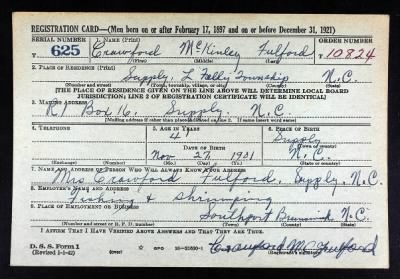 REGISTRATION CARD—(Men born on or after February 17, 1897 and on or before December 31, 1921)
SERIAL NUMBER 1. NAME (Print) ORDER NUMBER
T 625 Crawford McKinley Fulford T 10824
(First) (Middle) (Last)
2. PLACE OF RESIDENCE (Print)
Supply, Township N.C.
(Number and street) (Town, township, village, or city) (County) (State)
[THE PLACE OF RESIDENCE GIVEN ON THE LINE ABOVE WILL DETERMINE LOCAL BOARD
JURISDICTION; LINE 2 OF REGISTRATION CERTIFICATE WILL BE IDENTICAL]
3. MAILING ADDRESS
R1 Box 16, Supply N.C.
[Mailing address if other than place indicated on line 2. If same insert word same]
4. TELEPHONE 5. AGE IN YEARS 6. PLACE OF BIRTH
Supply
DATE OF BIRTH (Town or county)
Nov 27 N.C.
(Exchange) (Number) (Mo.) (Day) (Yr.) (State or country)
7. NAME AND ADDRESS OF PERSON WHO WILL ALWAYS KNOW YOUR ADDRESS
Mrs Crawford Fulford, Supply, N.C.
8. EMPLOYER'S NAME AND ADDRESS
Fishing & Shrimping
9. PLACE OF EMPLOYMENT OR BUSINESS
Southport Brunswick N.C.
(Number and street or R. F. D. number) (Town) (County) (State)
I AFFIRM THAT I HAVE VERIFIED ABOVE ANSWERS AND THAT THEY ARE TRUE.
D. S. S. Form 1
(Revised 1-1-42) (over) GPO 16—21630-1 Crawford Mc Fulford